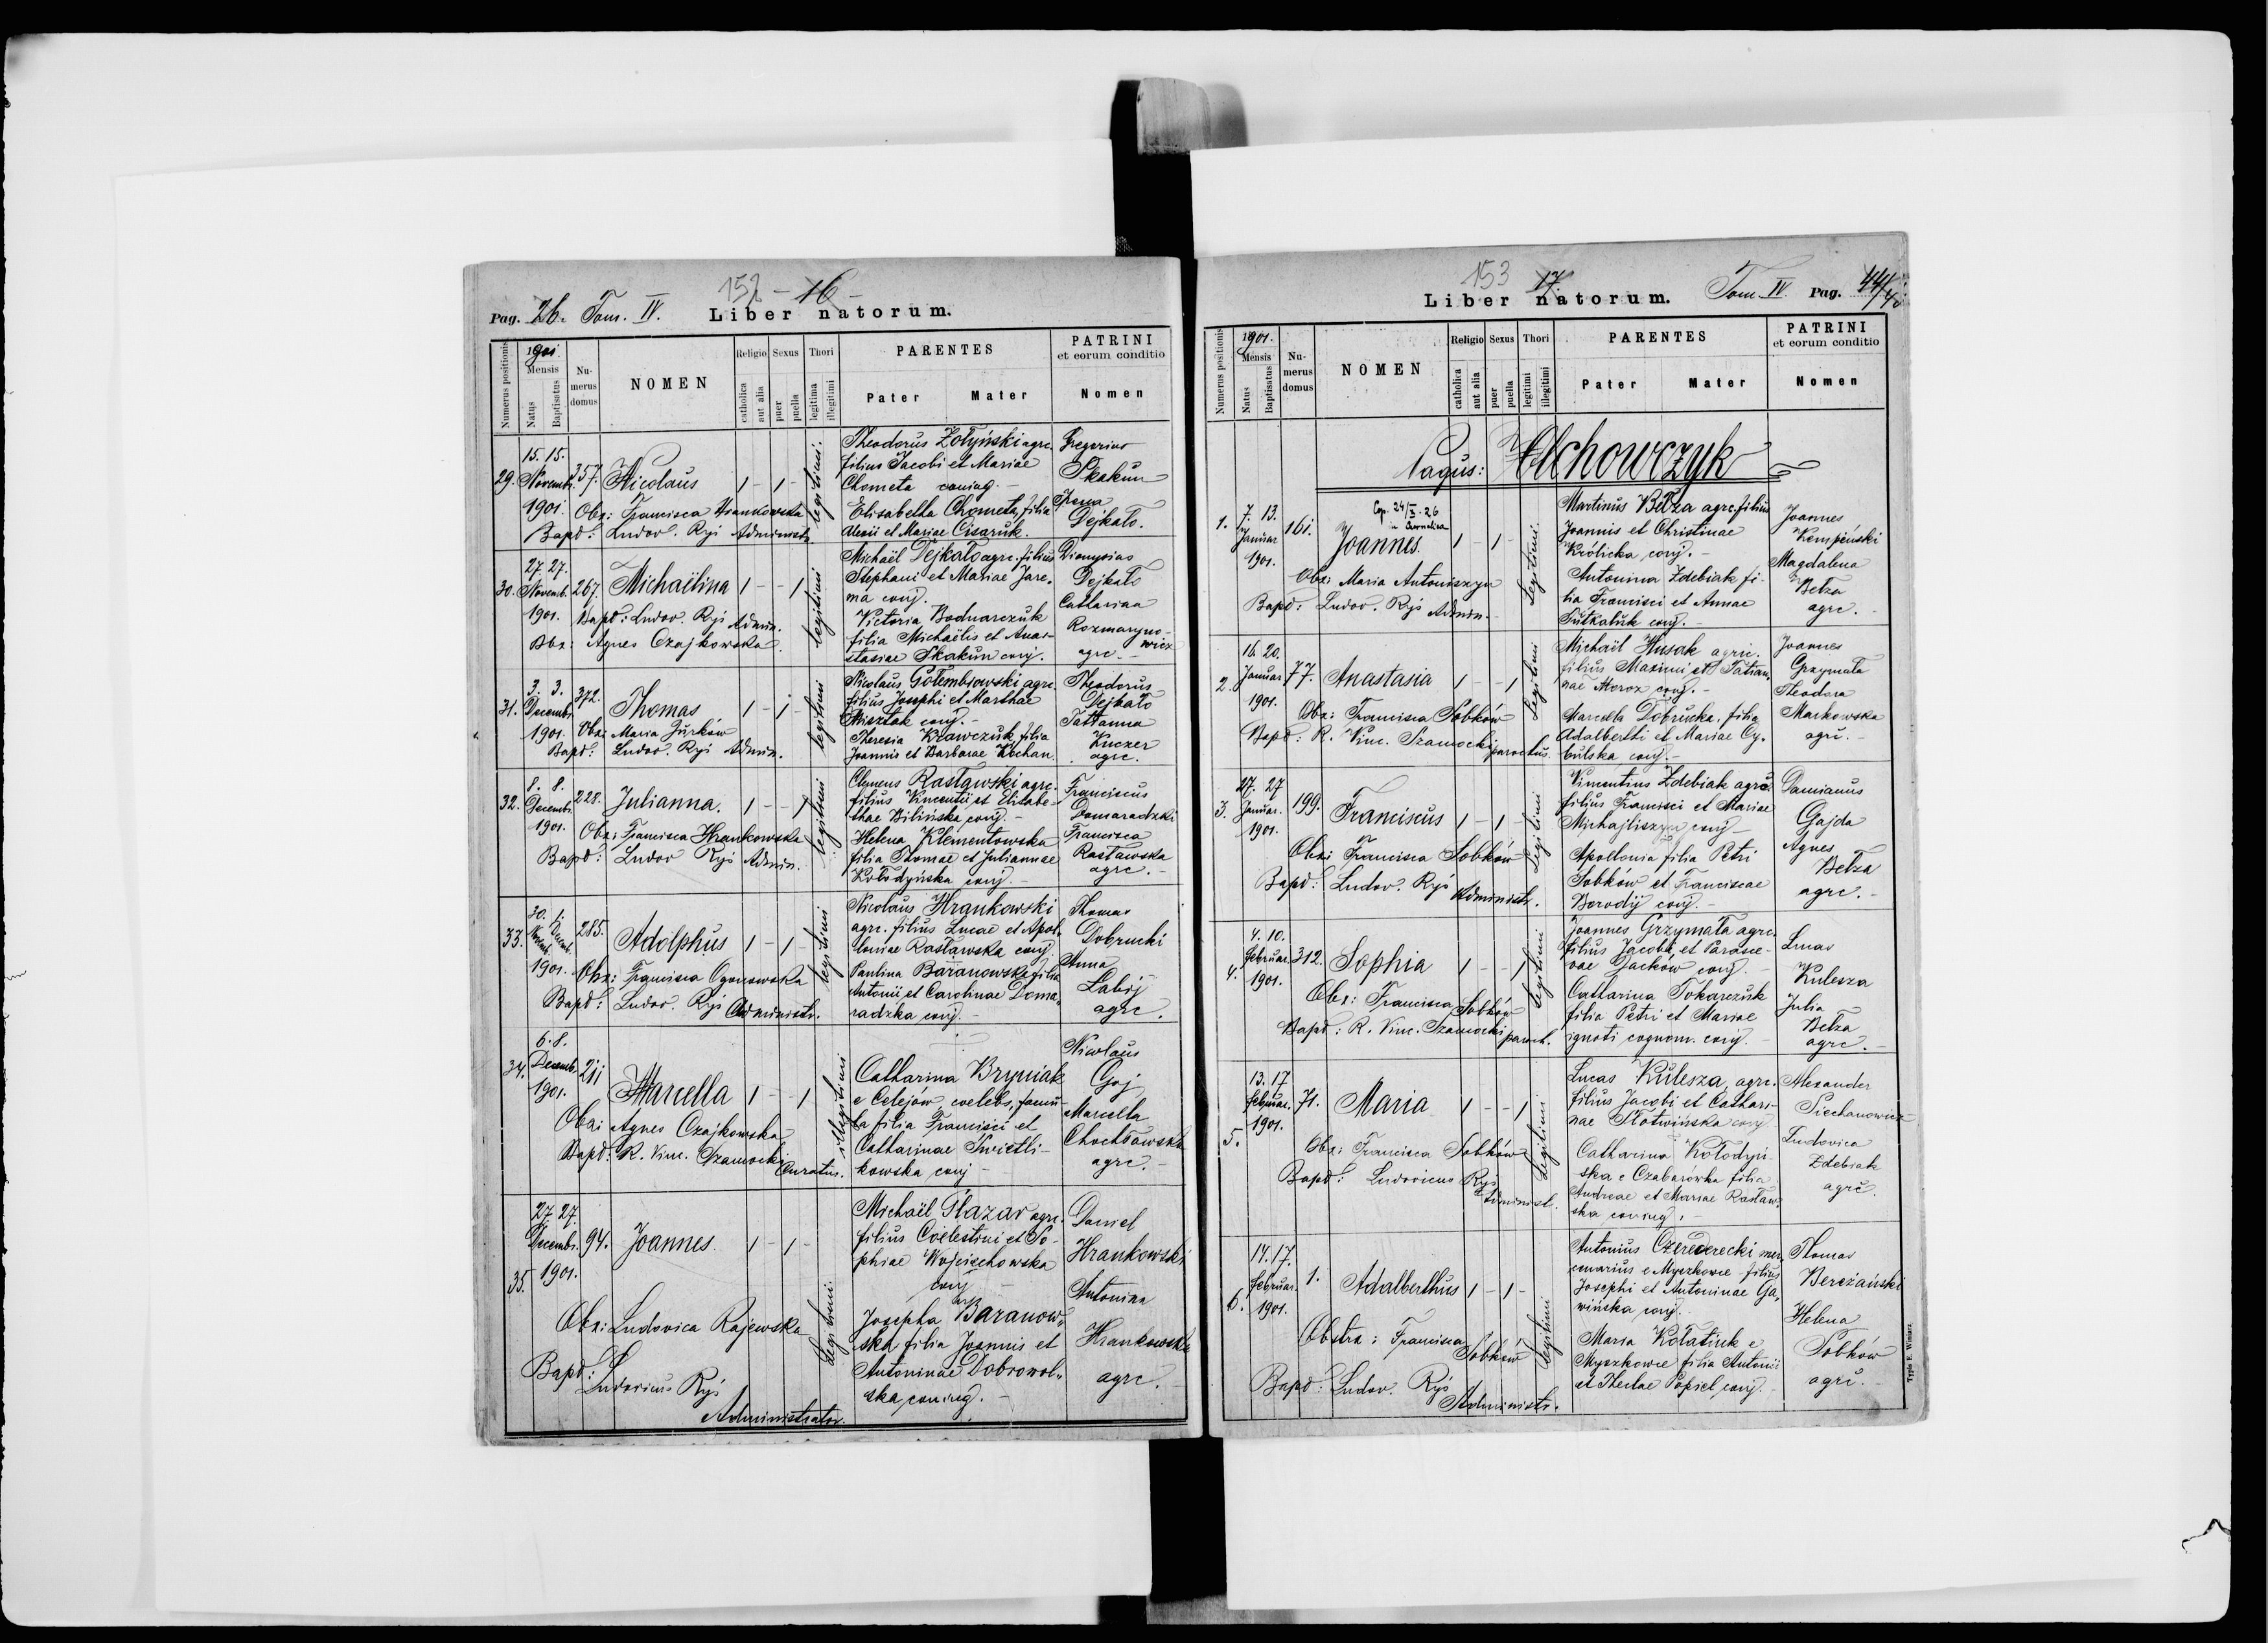 152 - 16 -
Pag. 26. Tom. IV. Liber natorum.
Numerus positionis
1901.
Mensis
Natus
Baptisatus
Numerus domus
NOMEN
Religio
catholica
aut alia
Sexus
puer
puella
Thori
legitima
illegitimi
PARENTES
Pater Mater
PATRINI
et eorum conditio
Nomen
29.
15. 15.
Novemb.
1901.
357.
Nicolaus
1 - 1 -
legitimi
Obx: Francisca Hrankowska
Bapt: Ludov. Ryś Administr.
Theodorus Żołyński agrc.
filius Jacobi et Mariae
Chometa coniug.
Elisabetha Chometa, filia
Alexii et Mariae Cisaruk.
Gregorius
Skakun
Dejkało.
30.
27. 27.
Novemb.
1901.
267.
Michaëlina
1 - - 1
legitimi
Bapt: Ludov. Ryś Admin.
Obx: Agnes Czajkowska.
Michaël Dejkało agrc. filius
Stephani et Mariae Jare-
ma conj.
Victoria Bodnarczuk
filia Michaëlis et Anas-
stasiae Skakun conj.
Dionysius
Dejkało
Catharina
Rozmaryno-
wicz
agrc. -
31.
3. 3.
Decemb.
1901.
372.
Thomas
1 - 1 -
legitimi
Obx: Maria Jurków
Bapt: Ludov. Ryś Admin.
Nicolaus Gołembiowski agrc.
filius Josephi et Marthae
Misztak conj. -
Theresia Krawczuk filia
Joannis et Barbarae Kochan.
Theodorus
Dejkało
Tattanna
Kuczer
agrc.
32.
8. 8.
Decemb.
1901.
228.
Julianna.
1 - - 1
legitimi
Obx: Francisca Hrankowska
Bapt: Ludov Ryś Admin.
Clemens Rasławski agrc.
filius Vincentii et Elisabe-
thae Bilińska conj. -
Helena Klementowska
filia Thomae et Juliannae
Kołodyńska conj. -
Franciscus
Domaradzki
Francisca
Rasławska
agrc. -
33.
30. 1.
Novemb. Decemb.
1901.
285.
Adolphus
1 - 1 -
legitimi
Obx: Francisca Ogonowska
Bapt: Ludov. Ryś Administr.
Nicolaus Hrankowski
agrc. filius Lucae et Apol-
loniae Rasławska conj
Paulina Baranowska filia
Antonii et Carolinae Doma-
radzka conj. -
Thomas
Dobrucki
Anna
Labij
agrc.
34.
6. 8.
Decemb.
1901.
211
Marcella
1 - - 1
illegitimi
Obx: Agnes Czajkowska
Bapt: R. Vinc. Szamocki Curatus.
Catharina Bryniak
e Celejów coelebs, famu-
la filia Francisci et
Catharinae Świetli-
kowska conj -
Nicolaus
Goj
Marcella
Chochłowska
agrc. -
35.
27. 27.
Decemb.
1901.
94.
Joannes.
1 - 1 -
Legitimi
Obx: Ludovica Rajewska
Bapt: Ludovicus Ryś
Administrator.
Michaël Ślazar agrc.
filius Coelestini et So-
phiae Wojciechowska
conj
Josepha Baranow-
ska filia Joannis et
Antoninae Dobrowol-
ska, coniug. -
Daniel
Hrankowski
Antonina
Hrankowska
agrc. -
153 17.
Liber natorum. Tom IV. Pag.
Numerus positionis
1901.
Mensis
Natus
Baptisatus
Numerus domus
NOMEN
Religio
catholica
aut alia
Sexus
puer
puella
Thori
legitimi
illegitimi
PARENTES
Pater Mater
PATRINI
et eorum conditio
Nomen
Pagus: Olchowczyk
1.
7. 13.
Januar
1901.
161.
Joannes.
1 - 1 -
Legitimi
Obx: Maria Antoniszyn
Bapt: Ludov. Ryś Admin.
Martinus Bełza agrc. filius
Joannis et Christinae
Królicka conj. -
Antonina Zdebiak fi-
lia Francisci et Annae
Sutkaluk conj. -
Joannes
Kempiński
Magdalena
Bełza
agrc. -
2.
16. 20.
Januar
1901.
77.
Anastasia
1 - - 1
Legitimi
Obx: Francisca Sobków
Bapt: R. Vinc. Szamocki parochus.
Michaël Husak agric.
filius Maximi et Tatian-
nae Moroz conj. -
Marcella Dobrucka, filia
Adalberthi et Mariae Cy-
bulska, conj. -
Joannes
Grzymała
Theodora
Markowska
agrc. -
3.
27. 27
Januar.
1901.
199.
Franciscus
1 - 1 -
Legitimi
Obx: Francisca Sobków
Bapt: Ludov. Ryś Administr.
Vincentius Zdebiak agrc.
filius Francisci et Mariae
Michajliszyn conj -
Apollonia filia Petri
Sobków et Franciscae
Borodij conj. -
Damianus
Gajda
Agnes
Bełza
agrc. -
4.
4. 10.
Februar.
1901.
312.
Sophia
1 - - 1
Legitimi
Obx: Francisca Sobków
Bapt: R. Vinc. Szamocki paroch.
Joannes Grzymała agrc.
filius Jacobi, et Parasce-
vae Jacków conj. -
Catharina Tokarczuk
filia Petri et Mariae
ignoti cognom. conj. -
Lucas
Kulesza
Julia
Bełza
agrc. -
5.
13. 17
Februar.
1901.
71.
Maria
1 - - 1
Legitimi
Obx: Francisca Sobków
Bapt: Ludovicus Ryś
Administr.
Lucas Kulesza, agrc.
filius Jacobi et Cathari-
nae Słotwińska conj
Catharina Kołodyń-
ska e Czabarówka filia
Andreae et Mariae Rasław-
ska coniug. -
Alexander
Piechanowicz
Ludovica
Zdebiak
agrc.
6.
14. 17.
Februar.
1901.
1.
Adalberthus
1 - 1 -
Legitimi
Obstx: Francisca
Sobków
Bapt: Ludov. Ryś
Administr.
Antonius Czerederecki mer-
cenarius e Myszkowce filius
Josephi et Antoninae Ga-
wińska conj. -
Maria Kołatiuk e
Myszkowce filia Antonii
et Theclae Popiel, conj. -
Thomas
Bereżański
Helena
Sobków
agrc. -
Typis E. Winiarz.